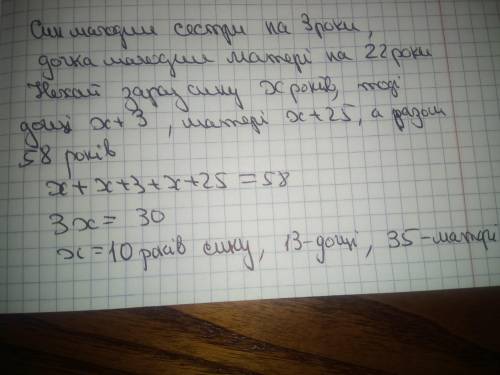 Син молодший сестри на 3 роки,
дочка молодша матері на 22 роки
Нехай зараз сину x років, тоді
дочці x + 3 , матері x + 25, а разом
58 років
x + x + 3 + x + 25 = 58
3x = 30
x = 10 років сину, 13 - дочці, 35 - матері